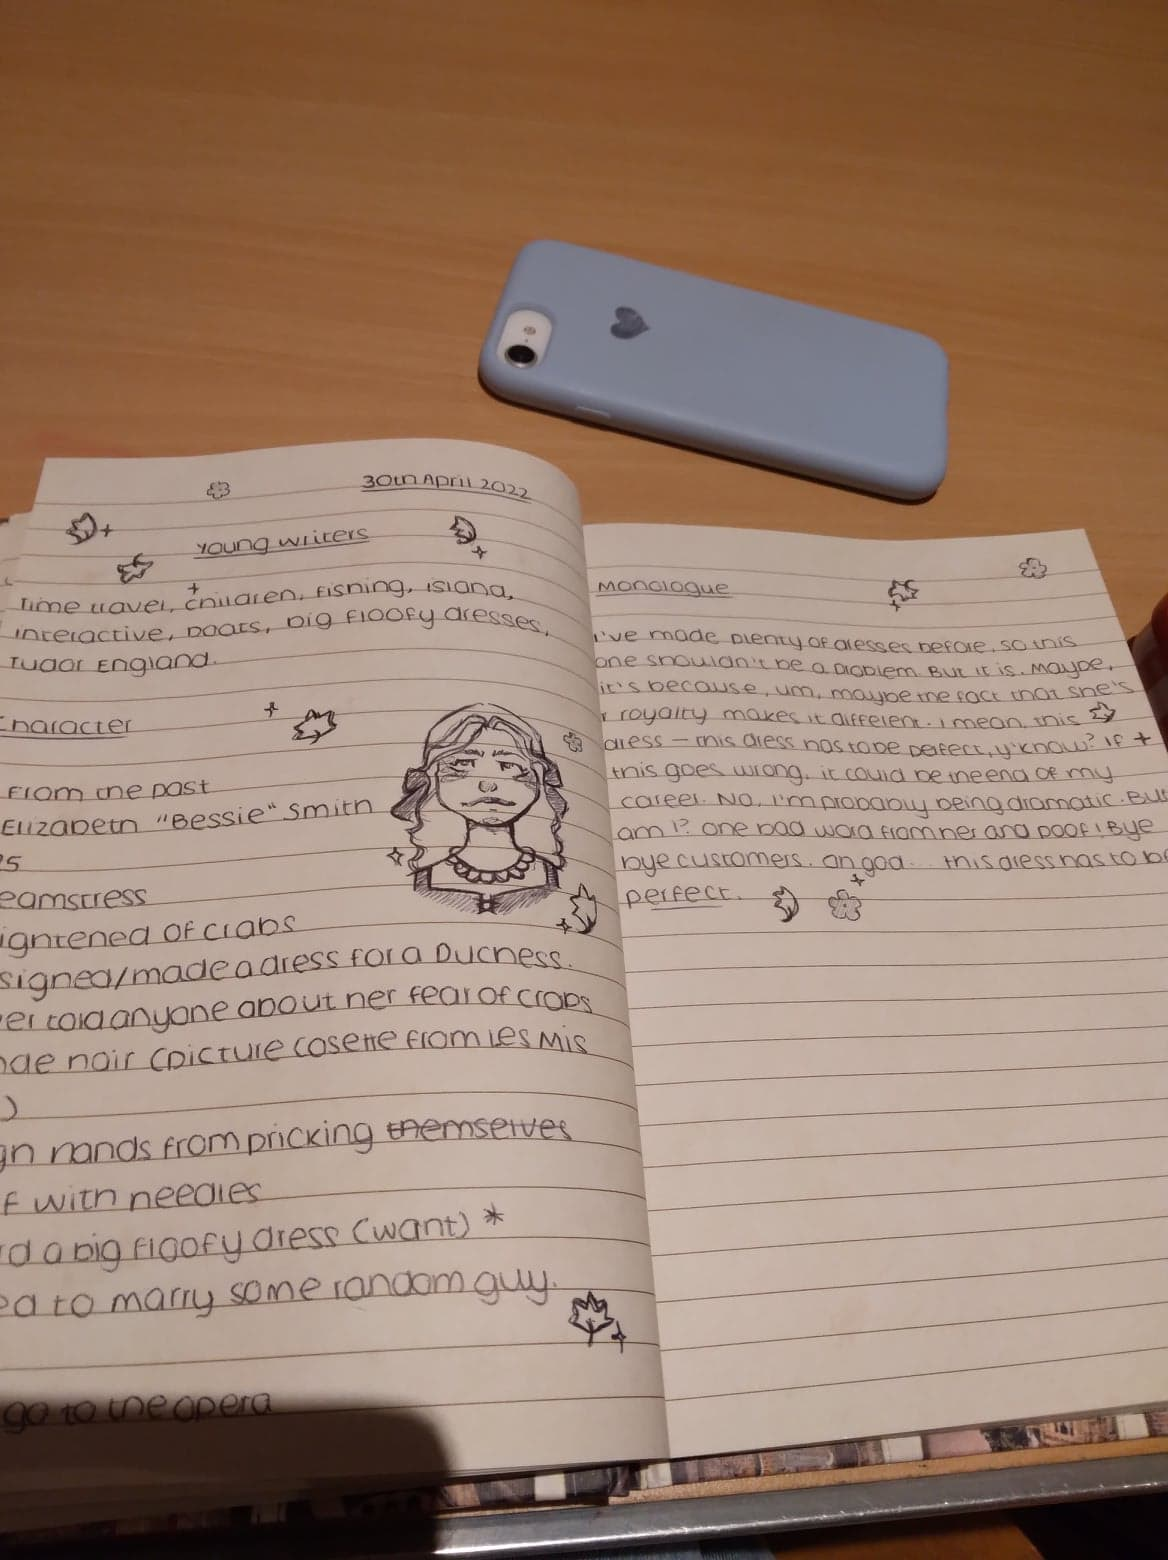 30th April 2022
Young Writers
Time travel, children, fishing, island,
interactive, boats, big floofy dresses,
Tudor England.
Character
From the past
Elizabeth "Bessie" Smith
5
eamstress
ightened of crabs
signed/made a dress for a Duchess.
er told anyone about her fear of crabs
de hair (picture cosette from Les Mis
)
gn hands from pricking themselves
f with needles
d a big floofy dress (want) *
ed to marry some random guy.
go to the opera
Monologue
I've made plenty of dresses before, so this
one shouldn't be a problem. But it is. Maybe,
it's because, um, maybe the fact that she's
r royalty makes it different. I mean, this
dress – this dress has to be perfect, y'know? If
this goes wrong, it could be the end of my
career. No, I'm probably being dramatic. But
am I? One bad word from her and poof! Bye
bye customers. Oh god... this dress has to be
perfect.